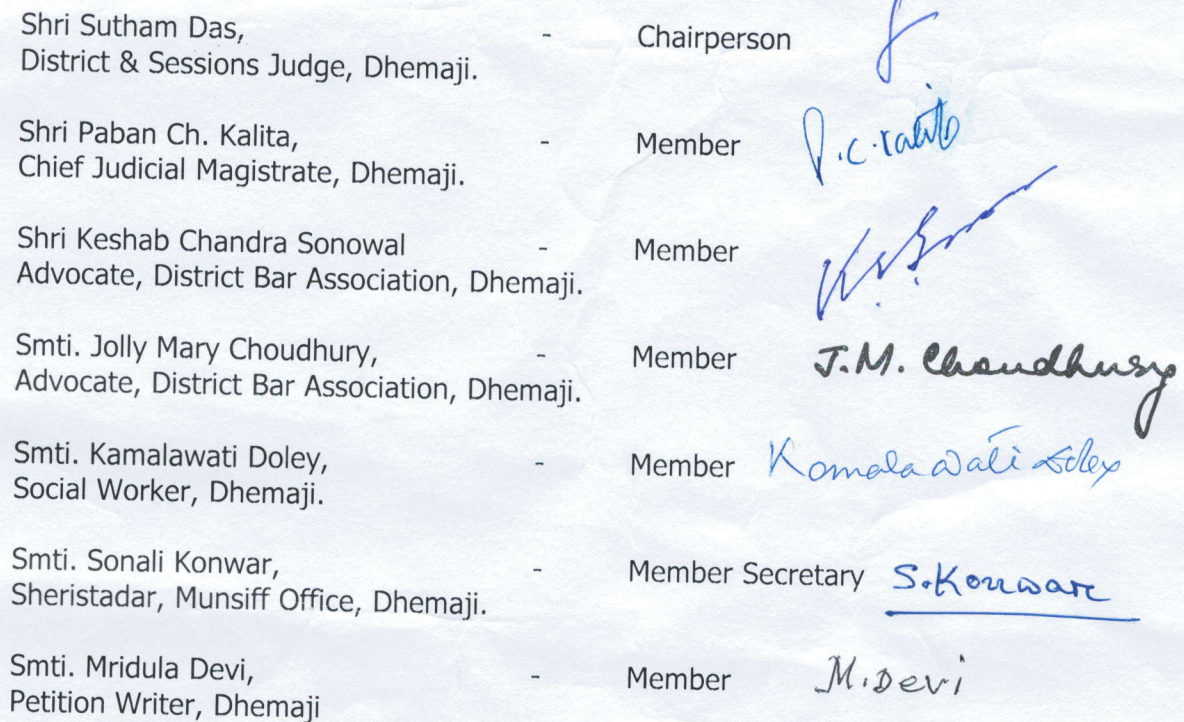 Shri Sutham Das, - Chairperson
District & Sessions Judge, Dhemaji.
Shri Paban Ch. Kalita, - Member P.C. Kalita
Chief Judicial Magistrate, Dhemaji.
Shri Keshab Chandra Sonowal - Member
Advocate, District Bar Association, Dhemaji.
Smti. Jolly Mary Choudhury, - Member J.M. Choudhury
Advocate, District Bar Association, Dhemaji.
Smti. Kamalawati Doley, - Member Komalawati Doley
Social Worker, Dhemaji.
Smti. Sonali Konwar, - Member Secretary S.Konwar
Sheristadar, Munsiff Office, Dhemaji.
Smti. Mridula Devi, - Member M.Devi
Petition Writer, Dhemaji